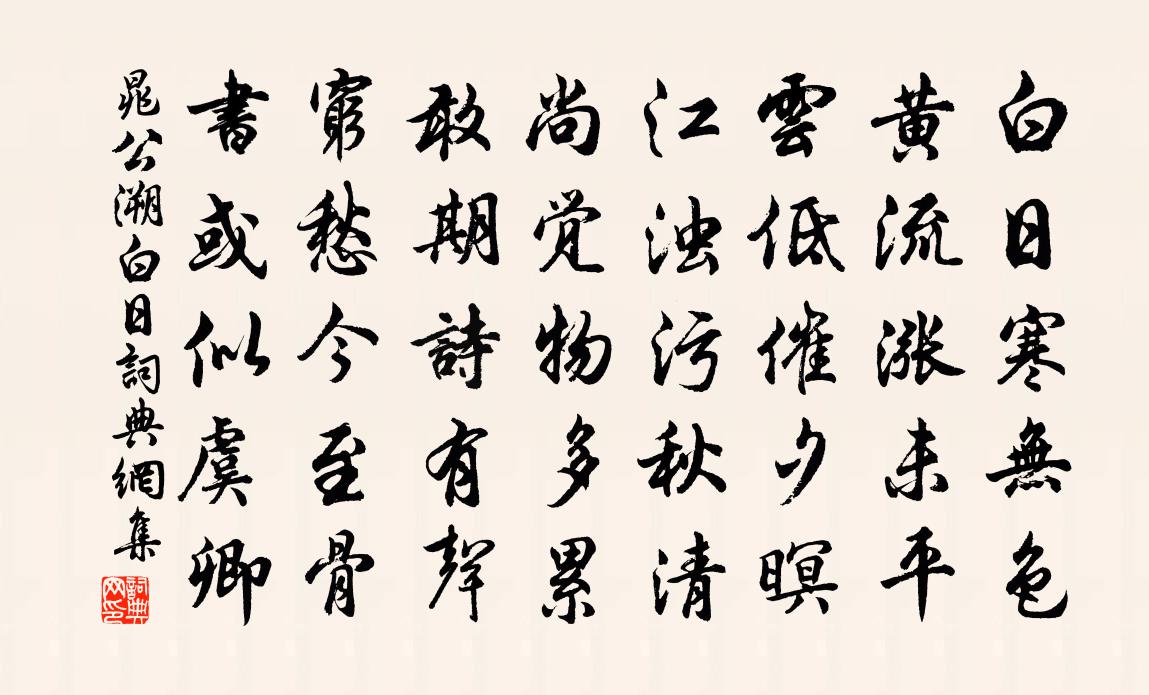 白日寒無色
黄流漲未平
雲低催夕暝
江浊污秋清
尚觉物多累
敢期詩有聲
窮愁今至骨
書或似虞卿
晁公溯白日詞典網集
詞典网印